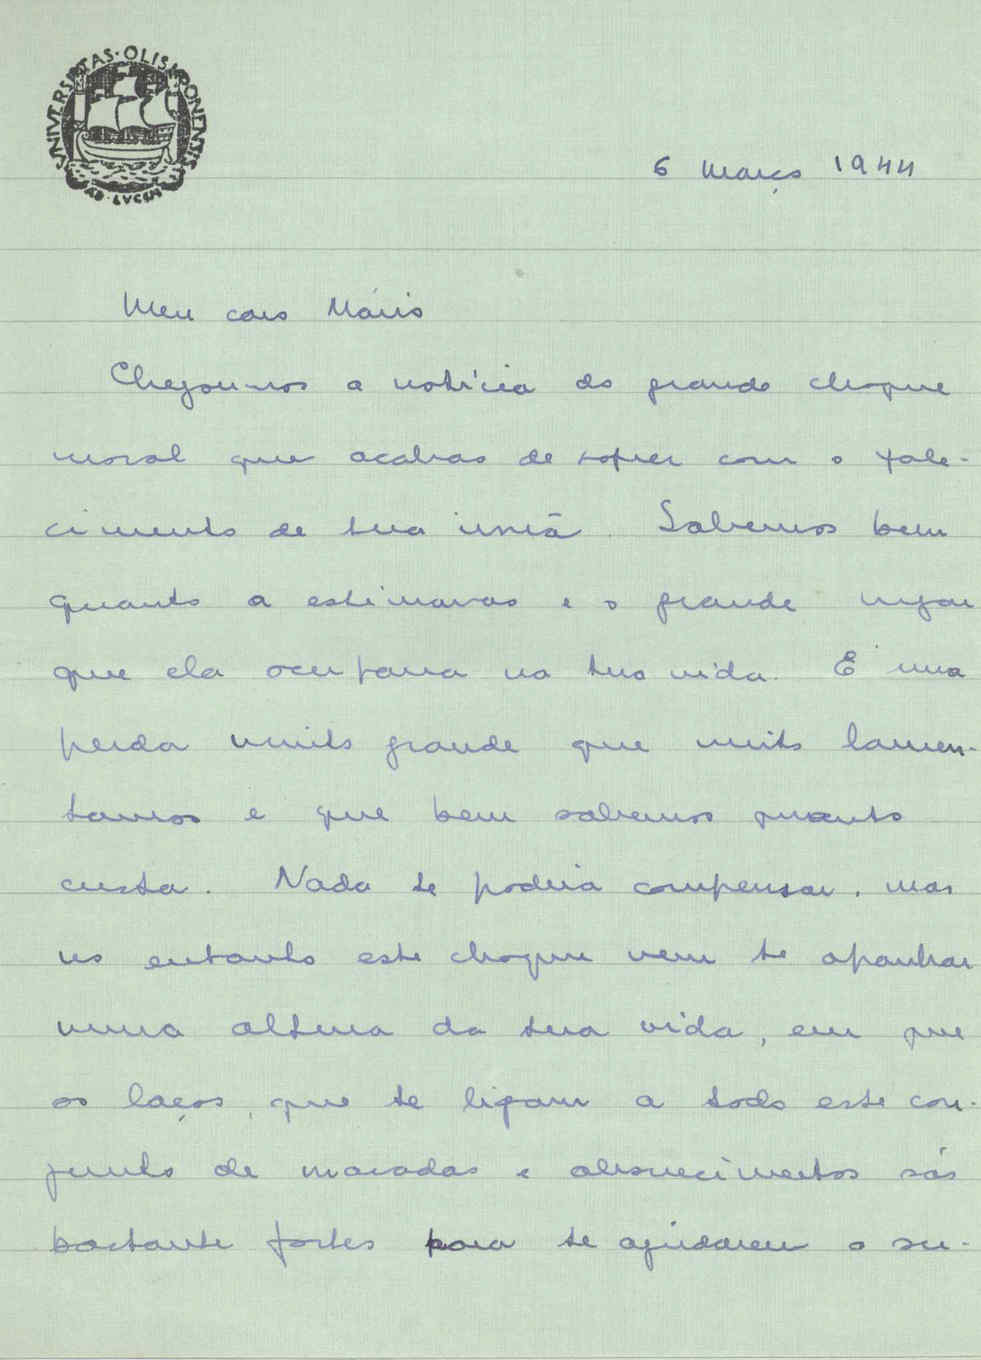 UNIVERSITAS·OLISIPONENSIS
AD·LVCEM
6 Março 1944
Meu caro Mário
Chegou-nos a notícia do grande choque
moral que acabas de sofrer com o fale-
cimento de tua irmã. Sabemos bem
quanto a estimavas e o grande lugar
que ela ocupava na tua vida. É uma
perda muito grande que muito lamen-
tamos e que bem sabemos quanto
custa. Nada te poderia compensar, mas
no entanto este choque vem te apanhar
numa altura da tua vida, em que
os laços, que te ligam a todo este con-
junto de maçadas e aborrecimentos são
bastante fortes para te ajudarem a su-